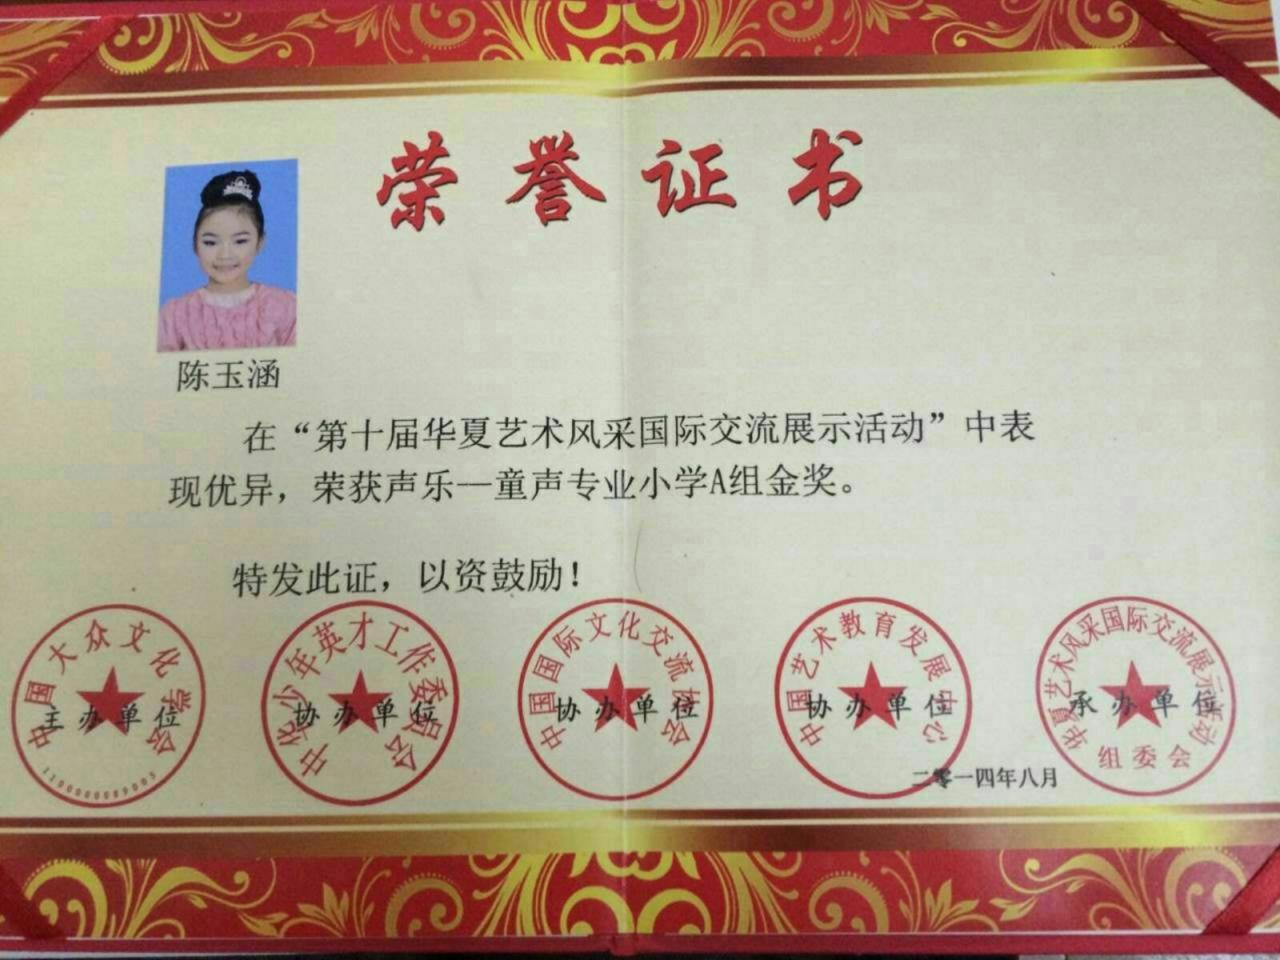 荣誉证书
陈玉涵
在“第十届华夏艺术风采国际交流展示活动”中表
现优异，荣获声乐—童声专业小学A组金奖。
特发此证，以资鼓励！
中国大众文化学会
主办单位
1100000089005
中华少年英才工作委员会
协办单位
中国国际文化交流协会
协办单位
中国艺术教育发展中心
协办单位
华夏艺术风采国际交流展示活动
承办单位
组委会
二零一四年八月